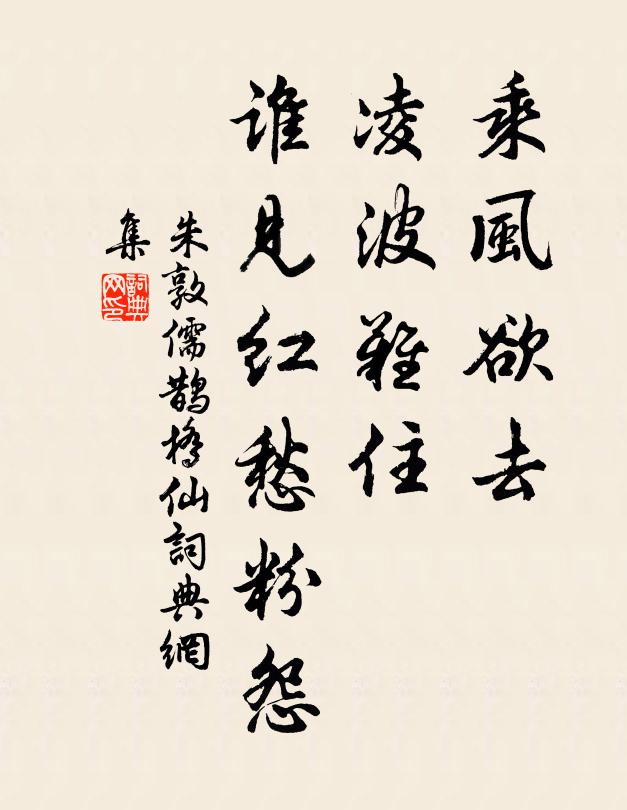 乘風欲去
凌波難住
誰見紅愁粉怨
朱敦儒鵲橋仙詞典網
集
詞典
网印